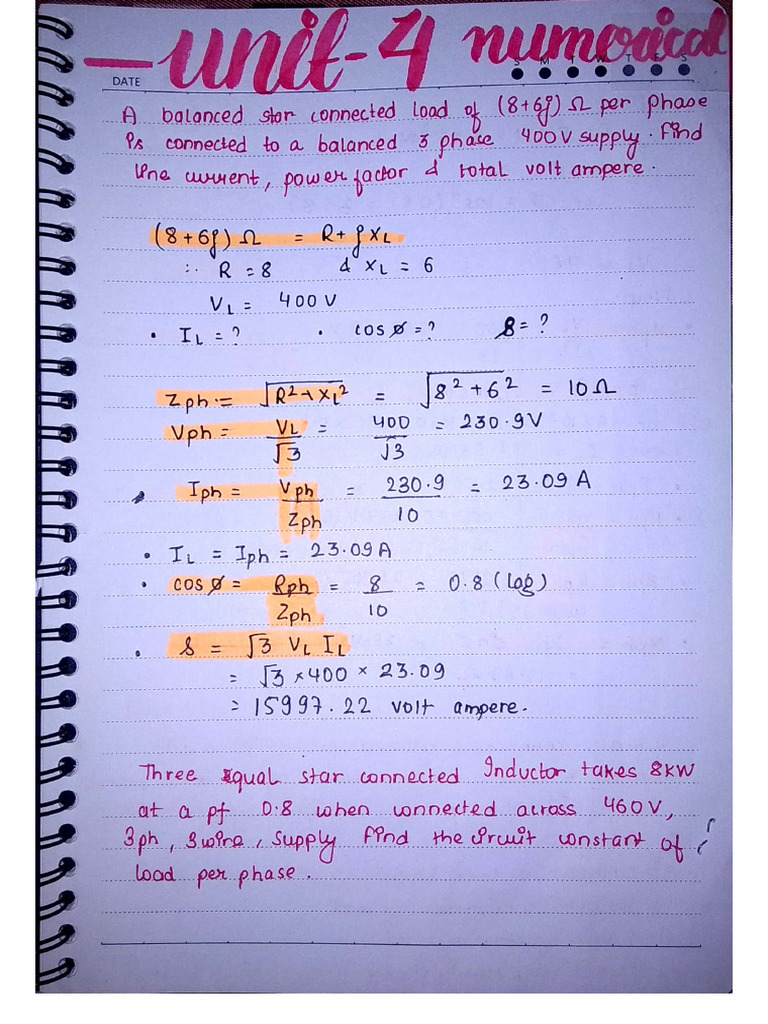 unit-4 numerical
S M T W T F S
DATE
A balanced star connected load of (8+6j) Ω per phase
is connected to a balanced 3 phase 400V supply. Find
line current, power factor & total volt ampere.
(8+6j) Ω = R+ j XL
∴ R = 8 & XL = 6
VL = 400 V
• IL = ? • cos ø = ? S = ?
Zph = √R²+XL² = √8²+6² = 10 Ω
Vph = VL/√3 = 400/√3 = 230.9V
Iph = Vph/Zph = 230.9/10 = 23.09 A
• IL = Iph = 23.09 A
• cos ø = Rph/Zph = 8/10 = 0.8 (lag)
• S = √3 VL IL
= √3 × 400 × 23.09
= 15997.22 volt ampere.
Three equal star connected Inductor takes 8kW
at a pf 0.8 when connected across 460V,
3ph, 3wire, supply find the circuit constant of
load per phase.